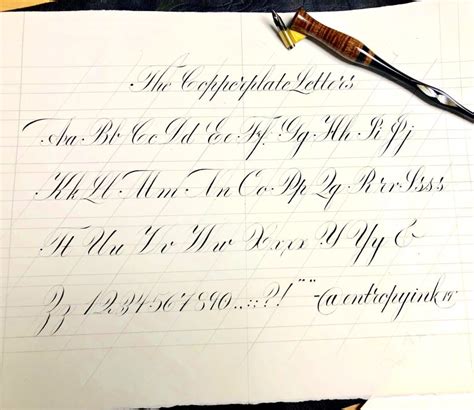 The Copperplate Letters
Aa·Bb·Cc·Dd·Ee·Ff·Gg·Hh·Ii·Jj
Kk·Ll·Mm·Nn·Oo·Pp·Qq·Rrr·Ssss
Tt Uu Vv Ww Xx,x,x Y Yy &
Zz·1234567890.,:;?! "" ~@entropyink